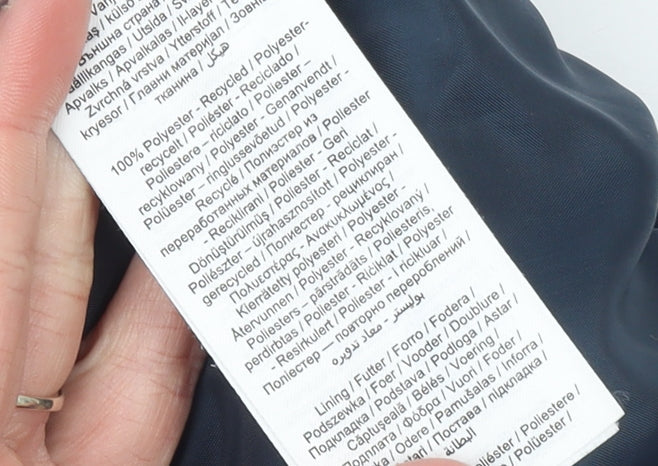 / külső
външна страна
Välikangas / Ulsida /
Apvalks / Apvalkalas /
Zvrchná vrstva / Ytterstoff /
kryesor / Главни материјал / Зовні
тканина / هيكل
100% Polyester - Recycled / Polyester-
recycelt / Poliéster - Reciclado /
Poliestere – riciclato / Poliester –
recyklowany / Polyester - Genanvendt /
Poliüester – ringlussevõetud / Polyester -
Recyclé / Полиэстер из
переработанных материалов / Poliester
- Reciklirani / Poliester - Geri
Dönüştürülmüş / Poliester - Reciclat /
Poliészter – újrahasznosított / Polyester -
gerecycled / Полиестер - рециклиран /
Πολυεστέρας - Ανακυκλωμένος /
Kierrätetty polyesteri / Polyester -
Återvunnen / Polyester - Recyklovaný /
Poliesters – pārstrādāts / Poliesteris,
perdirbtas / Poliester - Ričiklat / Polyester
- Resirkulert / Poliester - i ricikluar /
Поліестер — повторно перероблений /
بوليستر - معاد تدويره
Lining / Futter / Forro / Fodera /
Podszewka / Foer / Vooder / Doublure /
Подкладка / Podstava / Podloga / Astar /
Căptușeală / Bélés / Voering /
Подплата / Φόδρα / Vuori / Foder /
/ Odere / Pamušalas / Inforra /
/ Постава / підкладка /
البطانة
/ Poliéster / Poliestere /
/ Polüester /